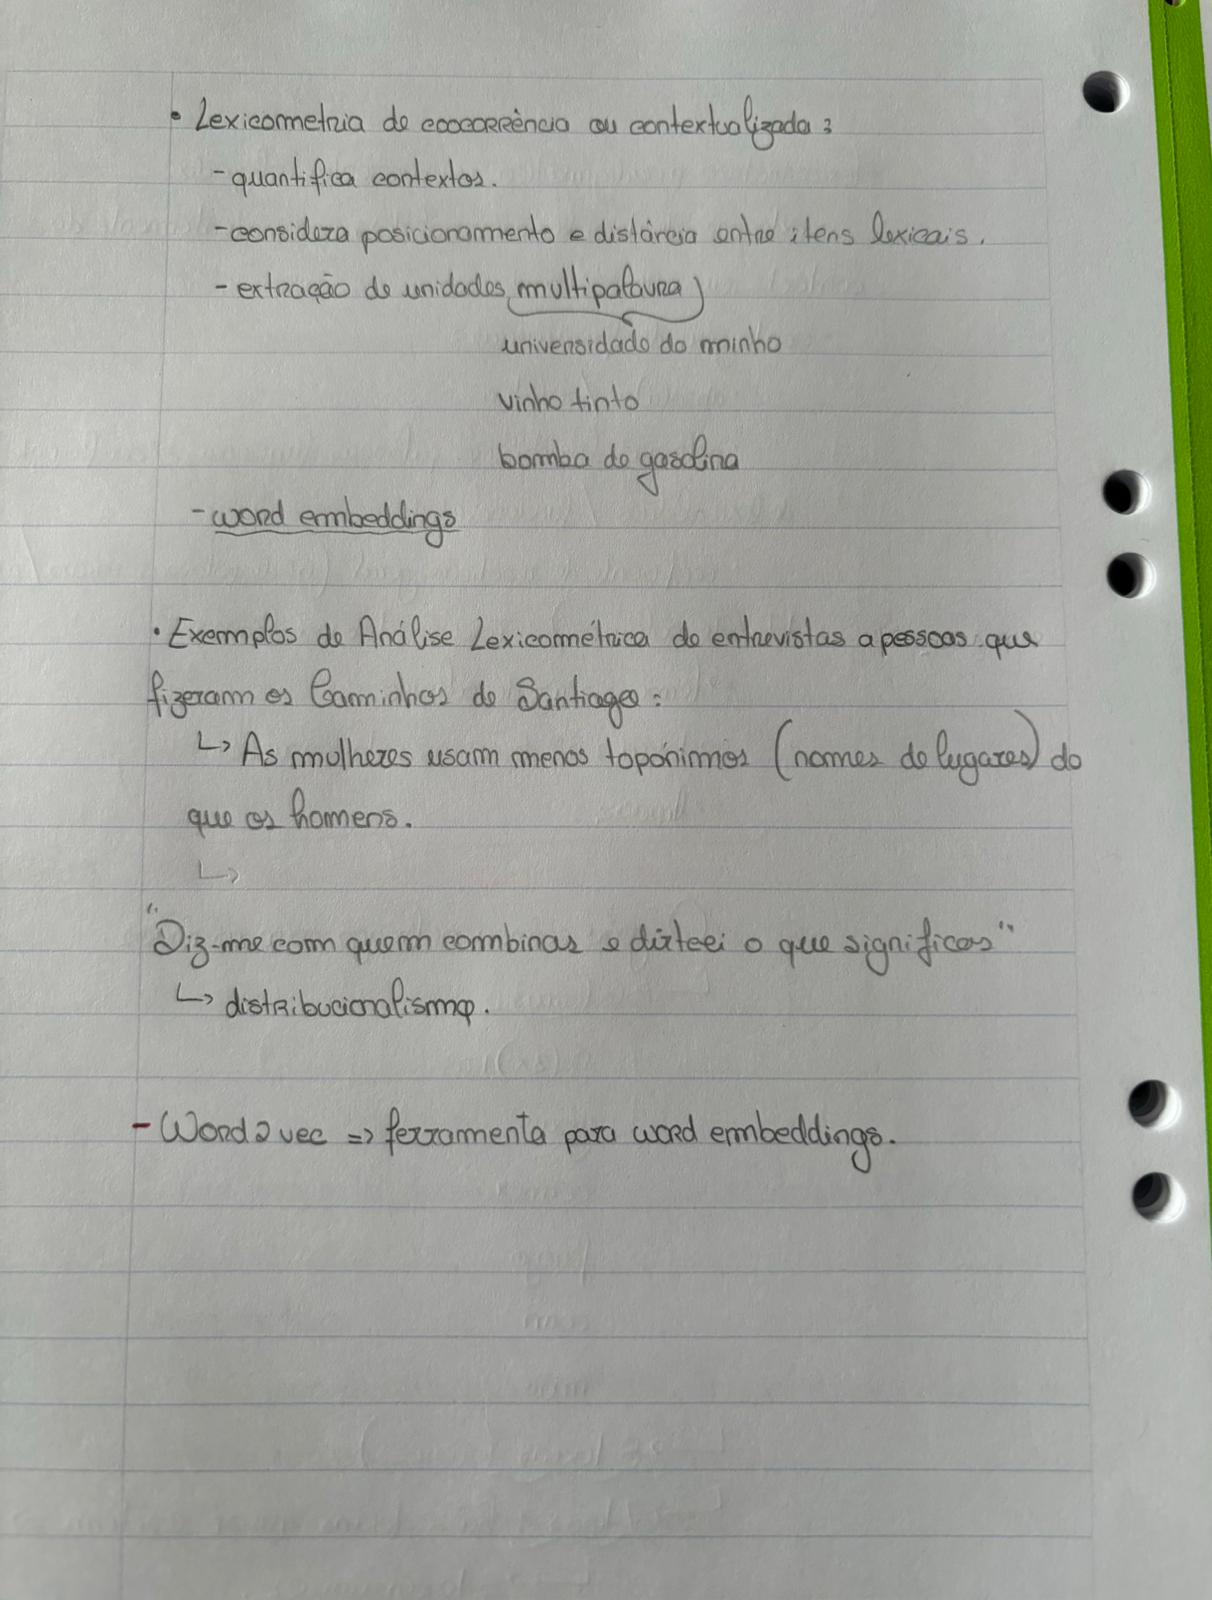 • Lexicometria de coocorrência ou contextualizada:
- quantifica contextos.
- considera posicionamento e distância entre itens lexicais.
- extração de unidades multipalavra
universidade do minho
vinho tinto
bomba de gasolina
- word embeddings
• Exemplos de Análise Lexicométrica de entrevistas a pessoas que
fizeram os Caminhos de Santiago:
↳ As mulheres usam menos topónimos (nomes de lugares) do
que os homens.
↳
"Diz-me com quem combinas e dirteei o que significas"
↳ distribucionalismo.
- Word2vec => ferramenta para word embeddings.